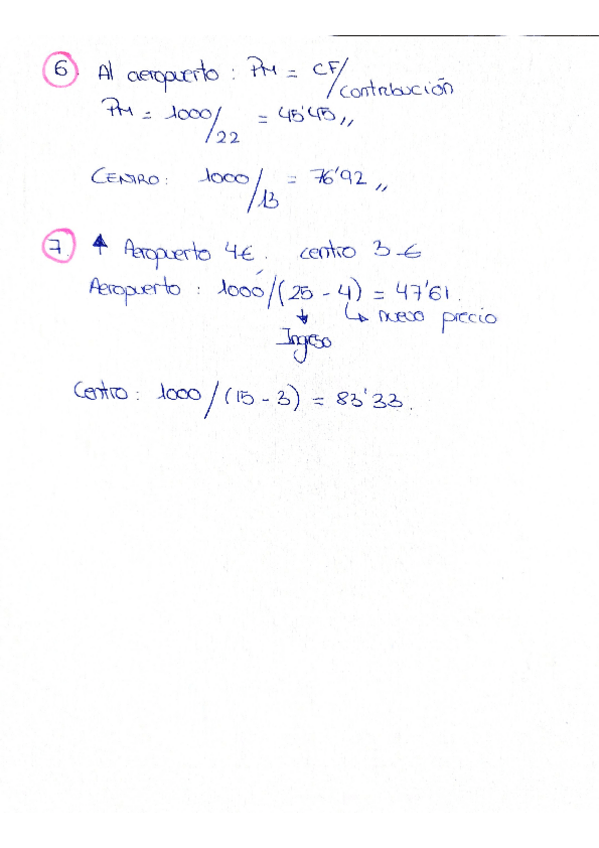 6. Al aeropuerto : PM = CF/contribución
PM = 1000/22 = 45'45,,
CENTRO: 1000/13 = 76'92,,
7. ↑ Aeropuerto 4€. centro 3€
Aeropuerto : 1000/(25 - 4) = 47'61.
↓ ↳ nuevo precio
Ingreso
Centro: 1000/(15 - 3) = 83'33.